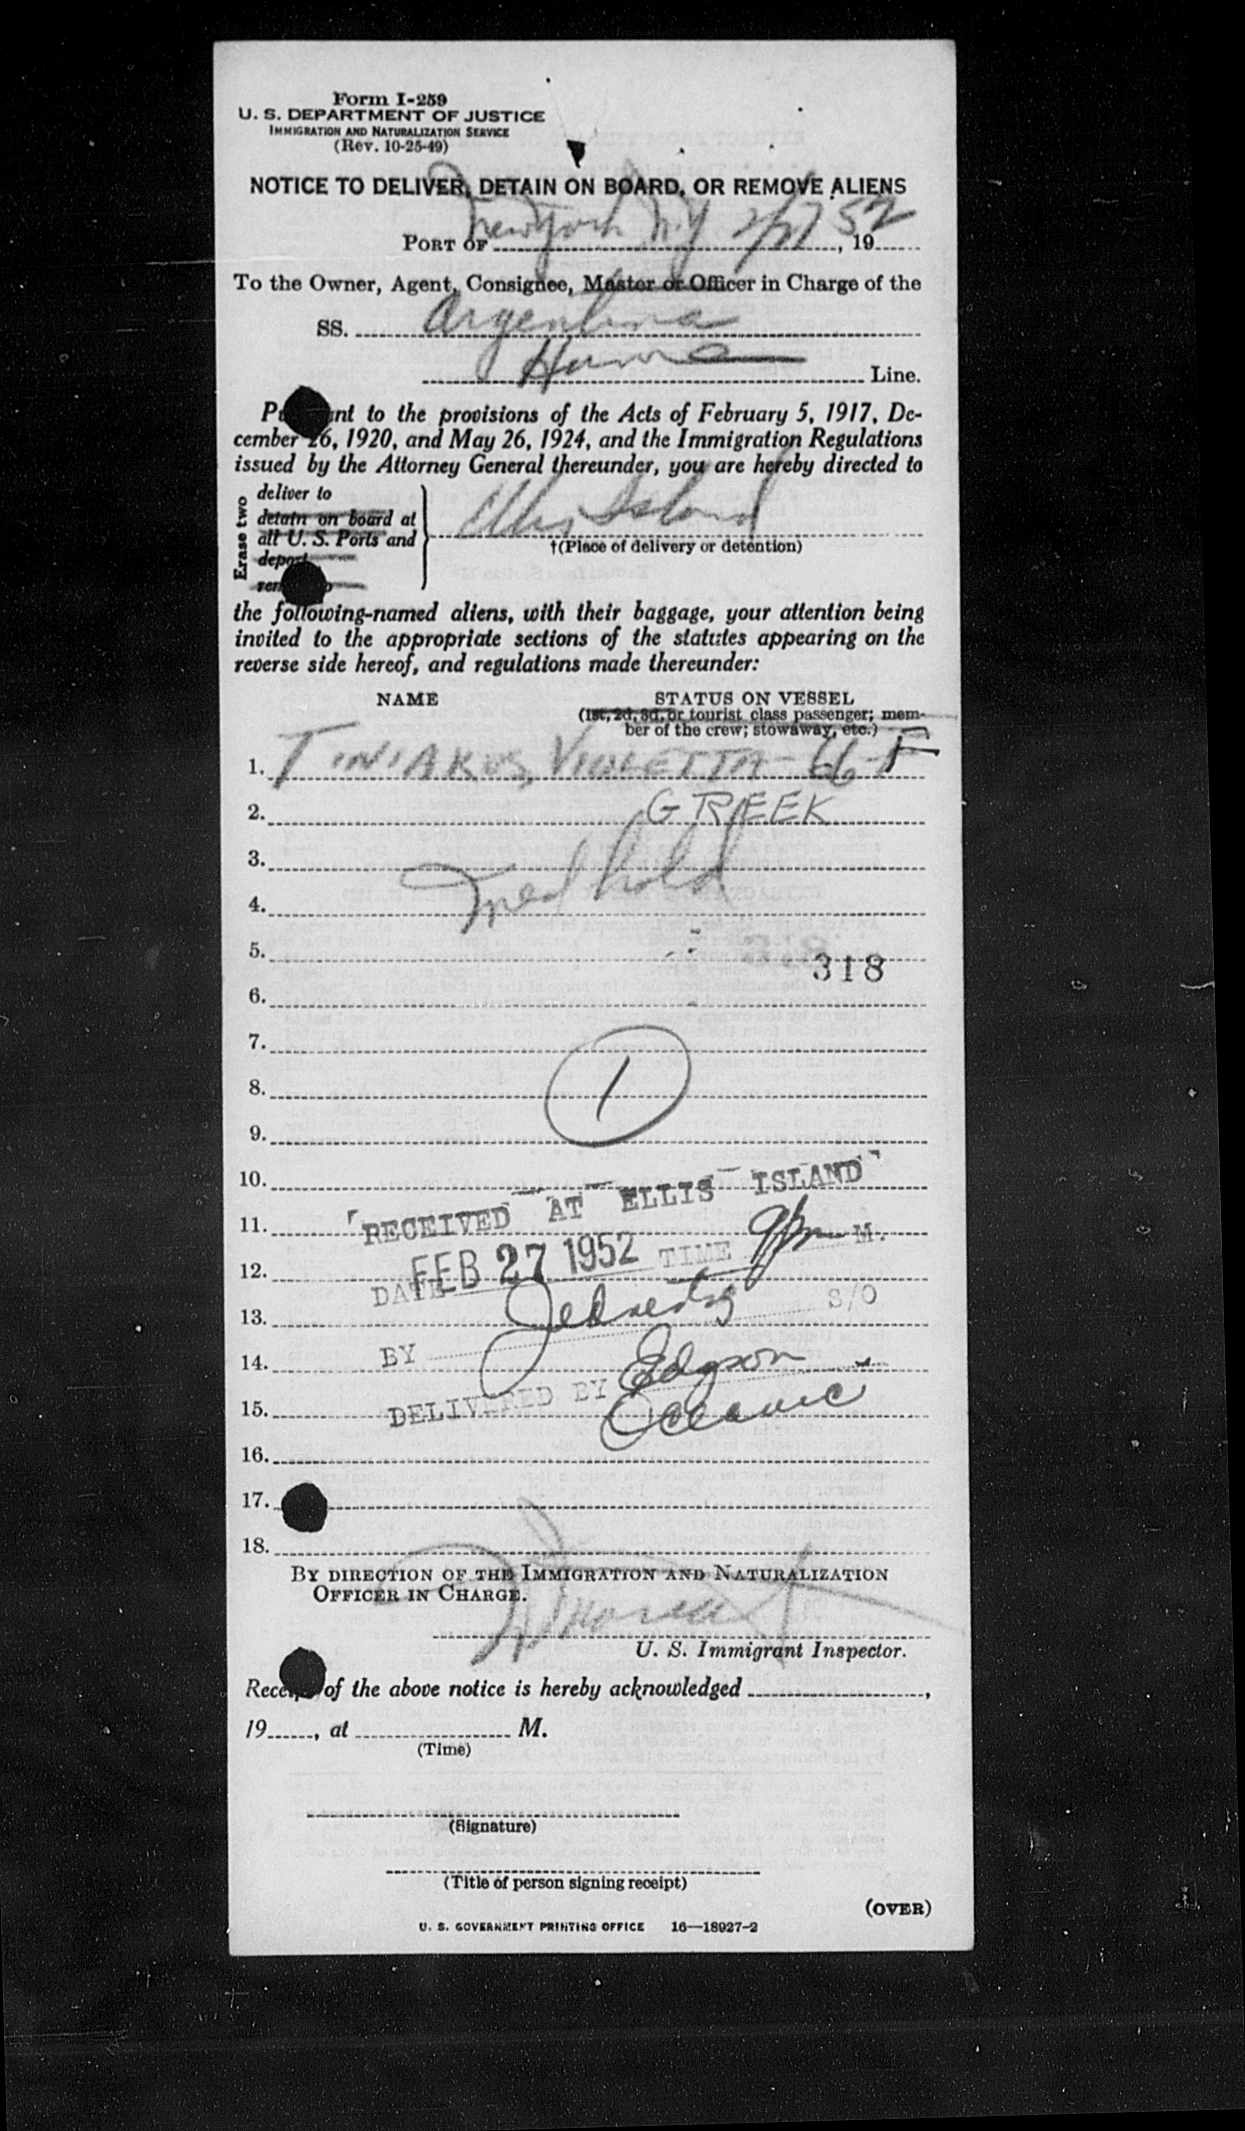 Form I-259
U. S. DEPARTMENT OF JUSTICE
IMMIGRATION AND NATURALIZATION SERVICE
(Rev. 10-25-49)
NOTICE TO DELIVER, DETAIN ON BOARD, OR REMOVE ALIENS
PORT OF New York N.Y 2/27, 1952
To the Owner, Agent, Consignee, Master or Officer in Charge of the
SS. Argentina
Home Line.
Pursuant to the provisions of the Acts of February 5, 1917, De-
cember 26, 1920, and May 26, 1924, and the Immigration Regulations
issued by the Attorney General thereunder, you are hereby directed to
Erase two
deliver to
detain on board at
all U. S. Ports and
deport
remove
Ellis Island
†(Place of delivery or detention)
the following-named aliens, with their baggage, your attention being
invited to the appropriate sections of the statutes appearing on the
reverse side hereof, and regulations made thereunder:
NAME STATUS ON VESSEL
(1st, 2d, 3d, or tourist class passenger; mem-
ber of the crew; stowaway, etc.)
1. TINIAKUS, VIOLETTA - 66 F
2. GREEK
3.
4. Med hold
5.
318
6.
7.
8. 1
9.
10.
11. "RECEIVED AT ELLIS ISLAND"
12. DATE FEB 27 1952 TIME 9pm M.
13. S/O
14. BY Edgson
15. DELIVERED BY Oceanic
16.
17.
18.
BY DIRECTION OF THE IMMIGRATION AND NATURALIZATION
OFFICER IN CHARGE.
U. S. Immigrant Inspector.
Receipt of the above notice is hereby acknowledged ,
19 , at M.
(Time)
(Signature)
(Title of person signing receipt)
(OVER)
U. S. GOVERNMENT PRINTING OFFICE 16—18927-2